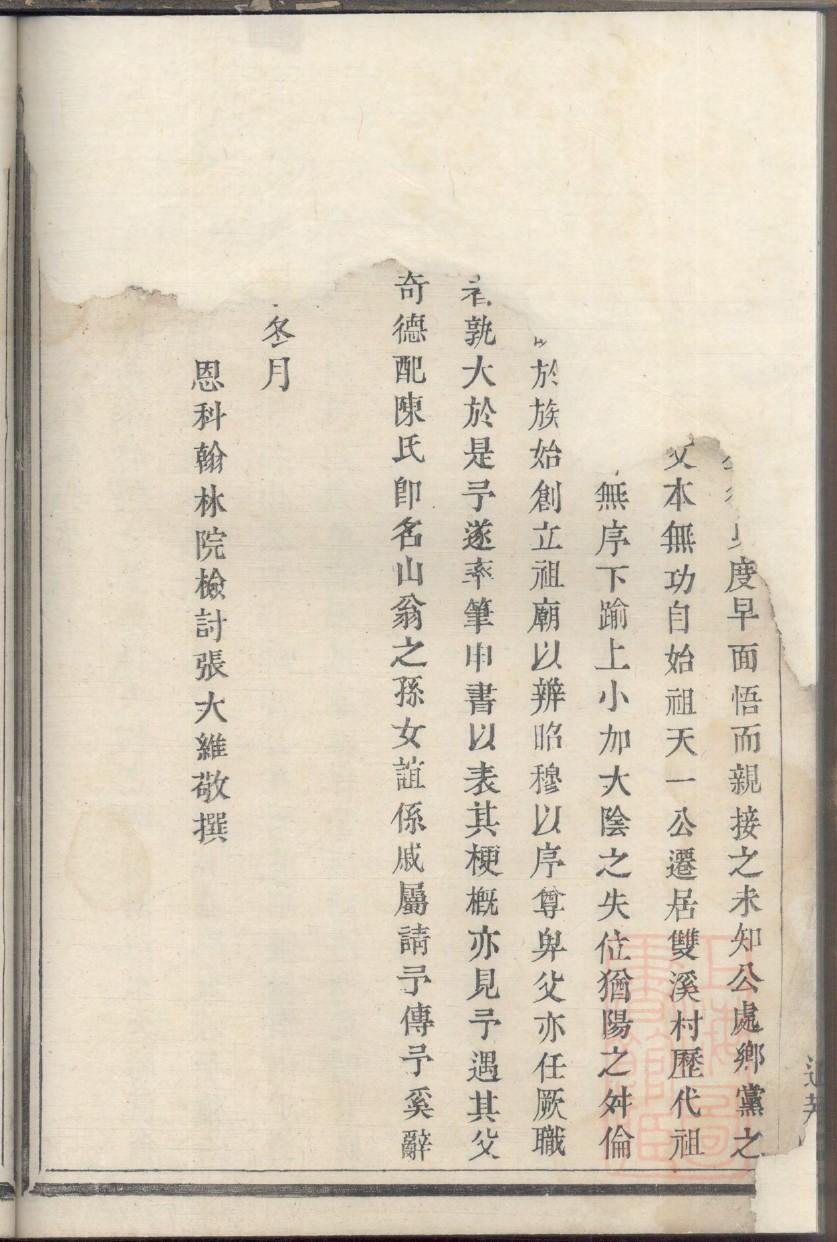 度早面悟而親接之未知公處鄉黨之
父本無功自始祖天一公遷居雙溪村歷代祖
無序下踰上小加大陰之失位猶陽之舛倫
於族始創立祖廟以辨昭穆以序尊卑父亦任厥職
孰大於是予遂率筆申書以表其梗概亦見予遇其父
奇德配陳氏即名山翁之孫女誼係戚屬請予傳予奚辭
冬月
恩科翰林院檢討張大維敬撰